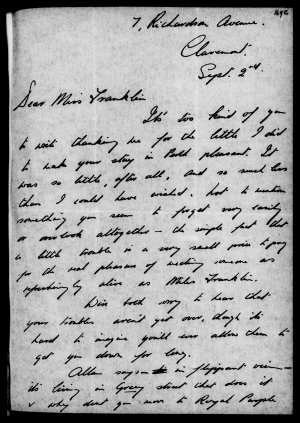 7, Richardson Avenue.
Claremont.
Sept. 2nd.
Dear Miss Franklin
It's too kind of you
to write thanking me for the little I did
to make your stay in Perth pleasant. It
was so little, after all, and so much less
than I could have wished, not to mention
something you seem to forget very easily
or overlook altogether - the simple fact that
a little trouble is a very small price to pay
for the real pleasure of meeting someone as
refreshingly alive as Miles Franklin.
I'm both sorry to hear that
your troubles aren't yet over, though it's
hard to imagine you'll ever allow them to
get you down for long.
Allan says - in flippant vein -
it's living in Grey street that does it
& why don't you move to Royal People